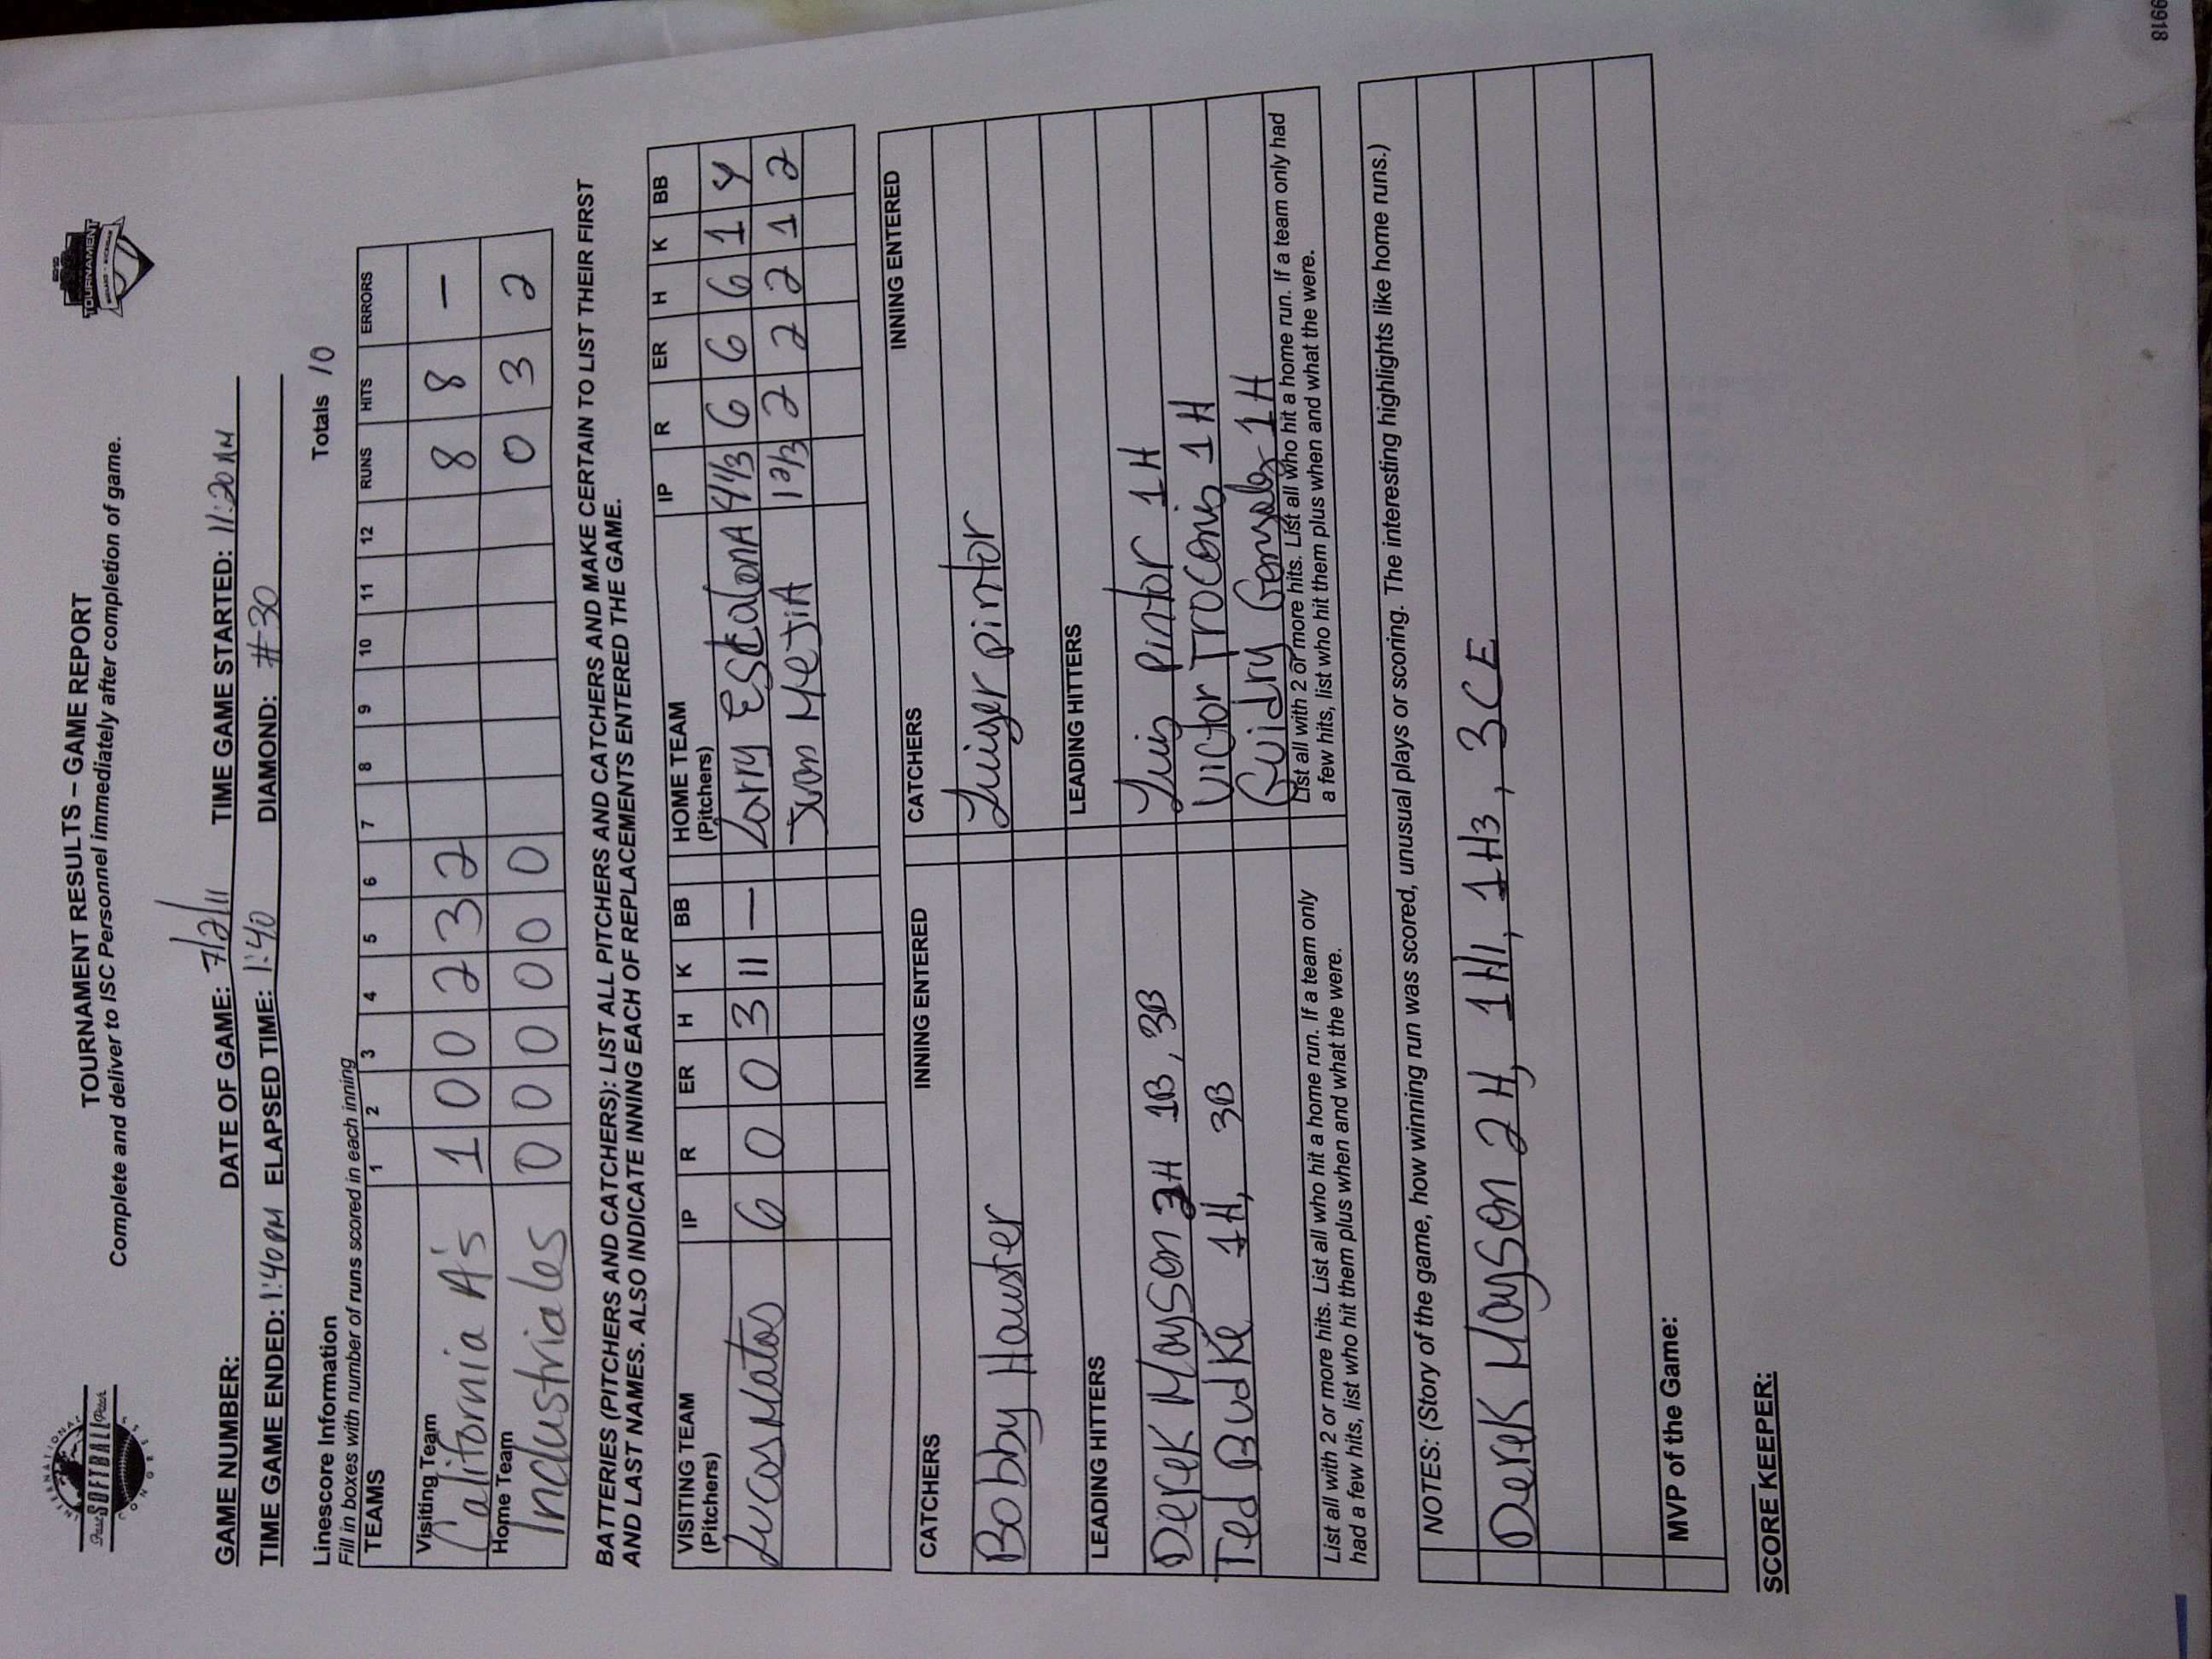 TOURNAMENT RESULTS – GAME REPORT
Complete and deliver to ISC Personnel immediately after completion of game.
INTERNATIONAL
Fast SOFTBALL Pitch
CONGRESS
TOURNAMENT
MIDLAND - MICHIGAN
GAME NUMBER: DATE OF GAME: 7/2/11 TIME GAME STARTED: 11:20AM
TIME GAME ENDED: 1:40PM ELAPSED TIME: 1:40 DIAMOND: #30
Linescore Information Totals 10
Fill in boxes with number of runs scored in each inning
TEAMS 1 2 3 4 5 6 7 8 9 10 11 12 RUNS HITS ERRORS
Visiting Team
California A's 1 0 0 2 3 2 8 8 –
Home Team
Industriales 0 0 0 0 0 0 0 3 2
BATTERIES (PITCHERS AND CATCHERS): LIST ALL PITCHERS AND CATCHERS AND MAKE CERTAIN TO LIST THEIR FIRST
AND LAST NAMES. ALSO INDICATE INNING EACH OF REPLACEMENTS ENTERED THE GAME.
VISITING TEAM (Pitchers) IP R ER H K BB HOME TEAM (Pitchers) IP R ER H K BB
Lucas Matos 6 0 0 3 11 – Larry EscalonA 4 1/3 6 6 6 1 4
Juan MejiA 1 2/3 2 2 2 1 2
CATCHERS INNING ENTERED CATCHERS INNING ENTERED
Bobby Hauster Luiger pintor
LEADING HITTERS LEADING HITTERS
Derek Mayson 2H 1B, 3B Luis Pintor 1H
Ted Budke 1H, 3B Victor Troconis 1H
Guidry Gonzalez 1H
List all with 2 or more hits. List all who hit a home run. If a team only
had a few hits, list who hit them plus when and what the were.
List all with 2 or more hits. List all who hit a home run. If a team only had
a few hits, list who hit them plus when and what the were.
NOTES: (Story of the game, how winning run was scored, unusual plays or scoring. The interesting highlights like home runs.)
Derek Mayson 2H, 1H1, 1H3, 3CE
MVP of the Game:
SCORE KEEPER:
9918